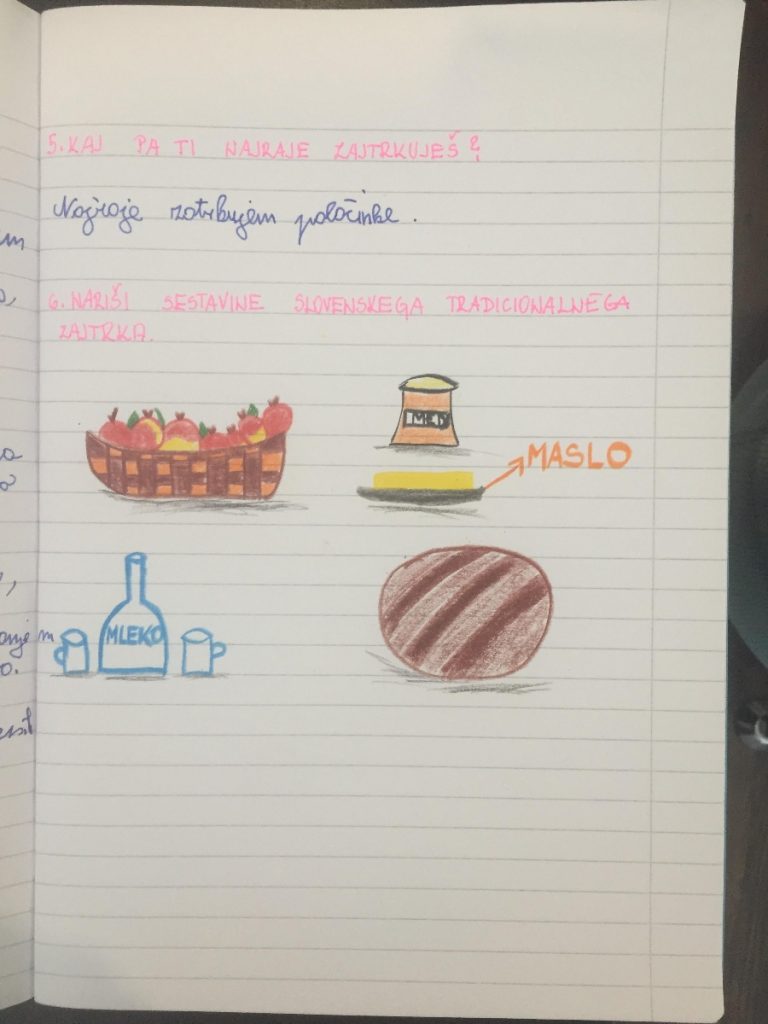 5. KAJ PA TI NAJRAJE ZAJTRKUJEŠ?
Najraje zatrkujem palačinke.
6. NARIŠI SESTAVINE SLOVENSKEGA TRADICIONALNEGA
ZAJTRKA.
MED
MASLO
MLEKO